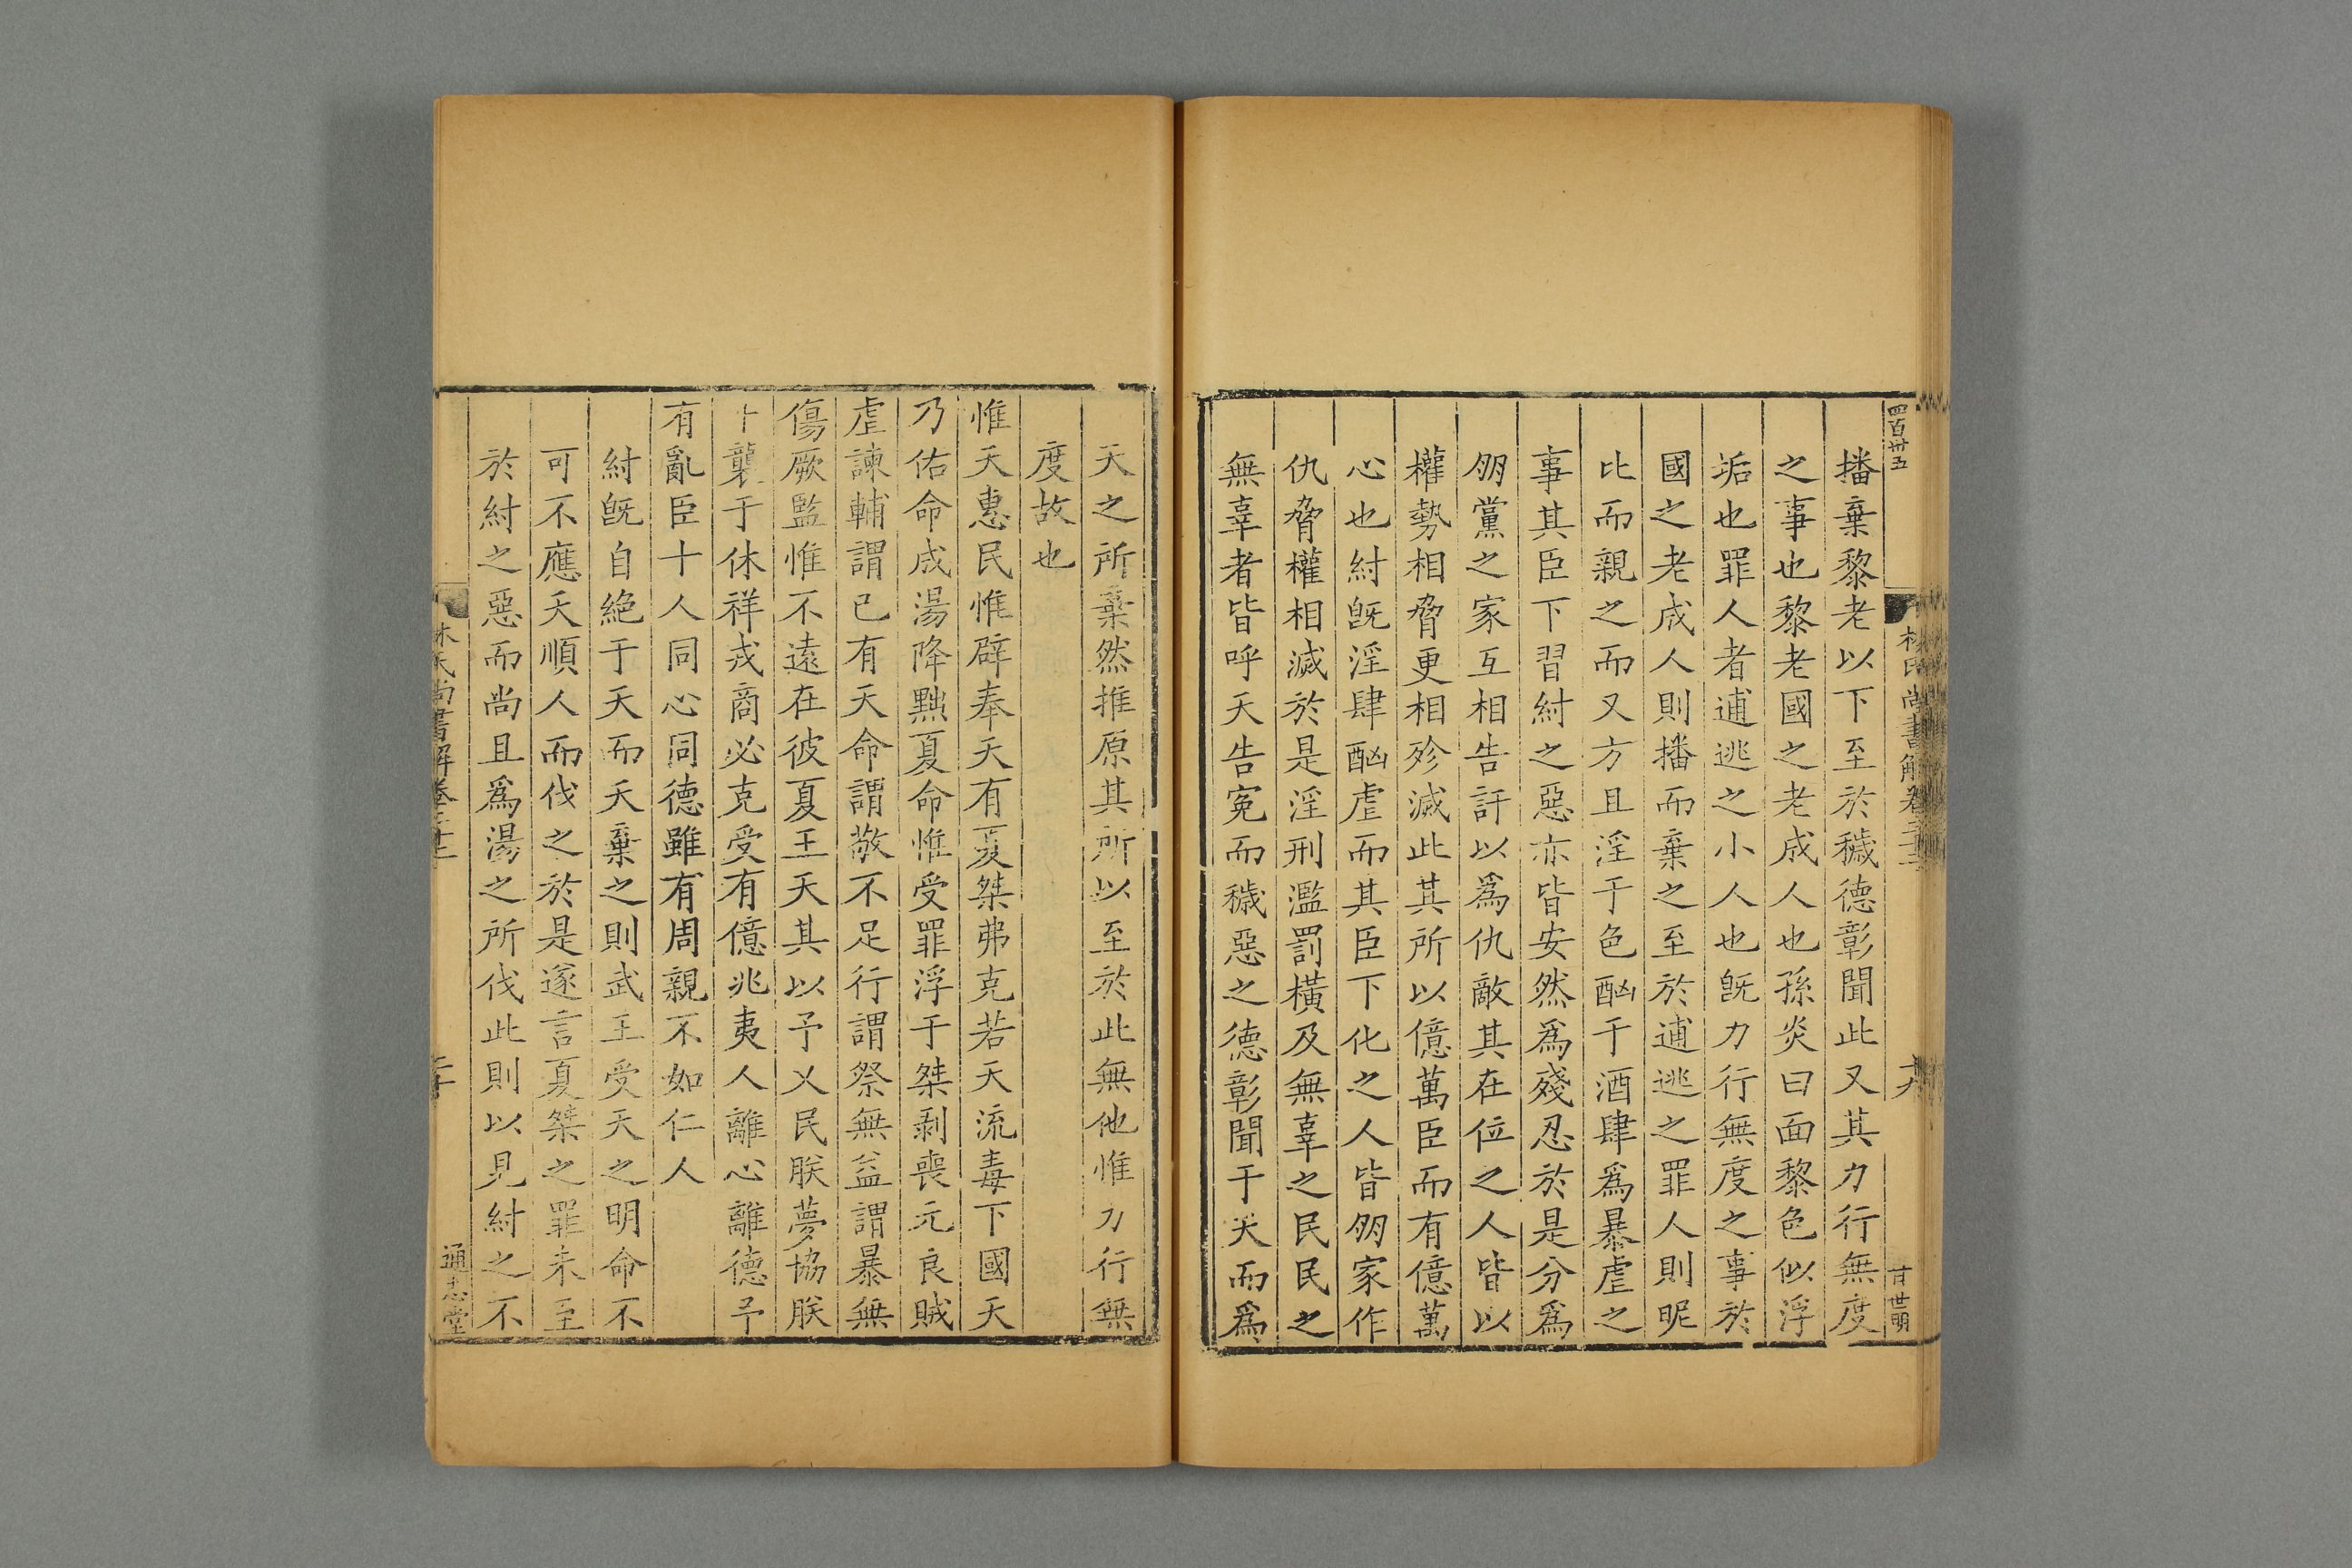 四百卅五
播棄黎老以下至於穢德彰聞此又其力行無度
之事也黎老國之老成人也孫炎曰面黎色似浮
垢也罪人者逋逃之小人也旣力行無度之事於
國之老成人則播而棄之至於逋逃之罪人則昵
比而親之而又方且淫于色酗于酒肆爲暴虐之
事其臣下習紂之惡亦皆安然爲殘忍於是分爲
朋黨之家互相告訐以爲仇敵其在位之人皆以
權勢相脅更相殄滅此其所以億萬臣而有億萬
心也紂旣淫肆酗虐而其臣下化之人皆朋家作
仇脅權相滅於是淫刑濫罰橫及無辜之民民之
無辜者皆呼天告冤而穢惡之德彰聞于天而爲
天之所棄然推原其所以至於此無他惟力行無
度故也
惟天惠民惟辟奉天有夏桀弗克若天流毒下國天
乃佑命成湯降黜夏命惟受罪浮于桀剥喪元良賊
虐諫輔謂己有天命謂敬不足行謂祭無益謂暴無
傷厥監惟不遠在彼夏王天其以予乂民朕夢協朕
卜襲于休祥戎商必克受有億兆夷人離心離德予
有亂臣十人同心同德雖有周親不如仁人
紂旣自絶于天而天棄之則武王受天之明命不
可不應天順人而伐之於是遂言夏桀之罪未至
於紂之惡而尚且爲湯之所伐此則以見紂之不
林氏尚書解卷
通志堂